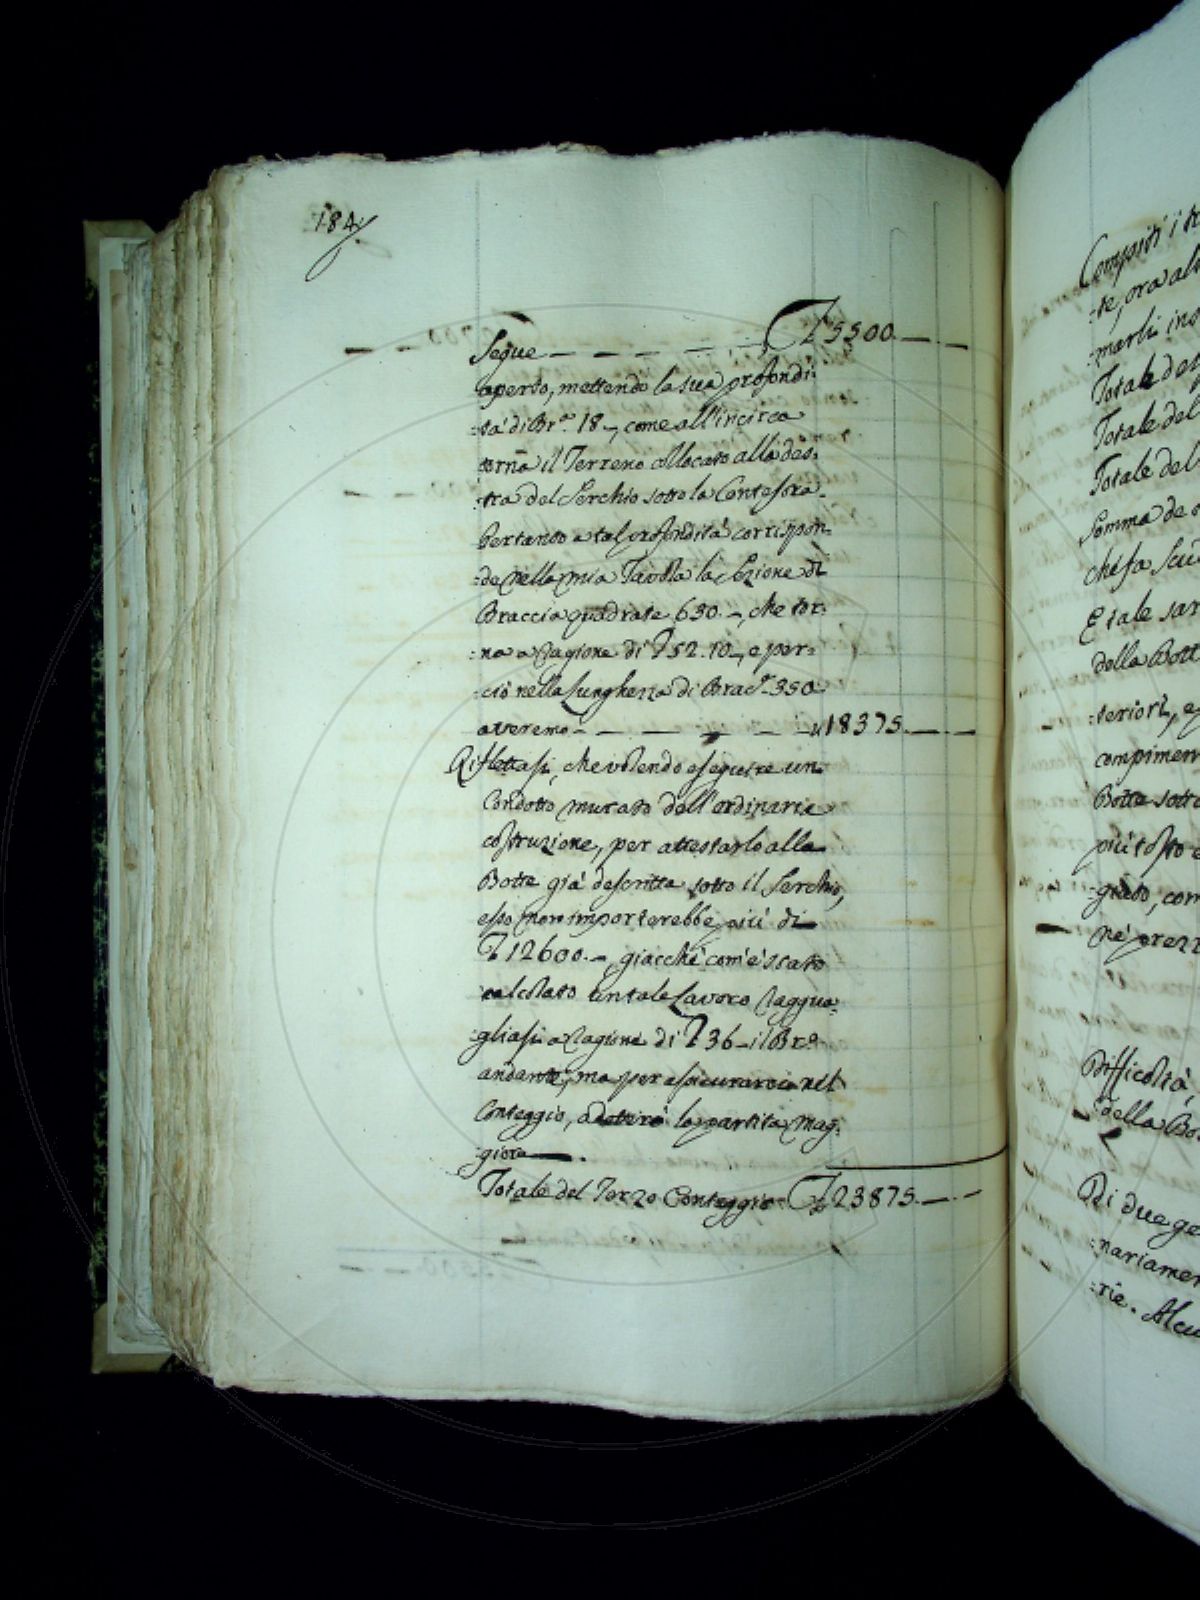 184
Segue - - - - - - ₤ 5500. - -
aperto, mettendo la sua profondi:
:tà di Br.ª 18 -, come all'incirca
torna il Terreno collocato alla des:
:tra del Serchio sotto la Contesora.
Pertanto a tal profondità corrispon:
:de nella mia Tavola la Sezione di
Braccia quadrate 630. -, che tor:
:na a ragione di ₤ 52. 10 -, e per:
:ciò nella lunghezza di Brac.ª 350
averemo - - - - - - 18375. - -
Riflettasi, che volendo eseguire un
Condotto murato dell'ordinaria
costruzione, per attestarlo alla
Botte già descritta sotto il Serchio,
esso non importerebbe più di
₤ 12600. -, giacché com'è stato
calcolato un tale Lavoro raggua:
:gliasi a ragione di ₤ 36 - il Br.º
andante, ma per assicurarci nel
Conteggio, adotterò la partita mag:
:giore.
Totale del Terzo Conteggio ₤ 23875. - -
Compositi i
:te, ora
:marli
Totale de
Totale del
Totale del
Somma de
che fa Scu
E tale sar
della Bott
:teriori, e
compimen
Botte sotto
più tosto
:giato, com
né prezz
Difficoltà,
della Bo
Di due ge
:nariamen
:rie. Alcu